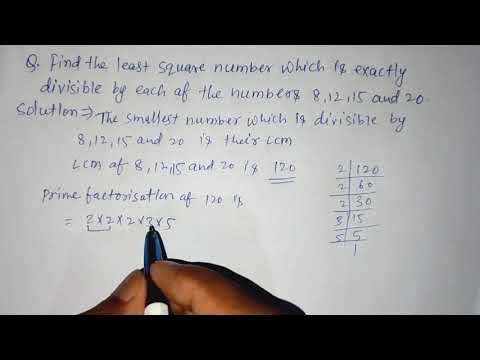 Q. Find the least square number which is exactly
divisible by each of the numbers 8,12,15 and 20.
Solution⇒ The smallest number which is divisible by
8,12,15 and 20 is their LCM
LCM of 8,12,15 and 20 is 120
Prime factorisation of 120 is
= 2×2×2×3×5
2|120
2|60
2|30
3|15
5|5
1